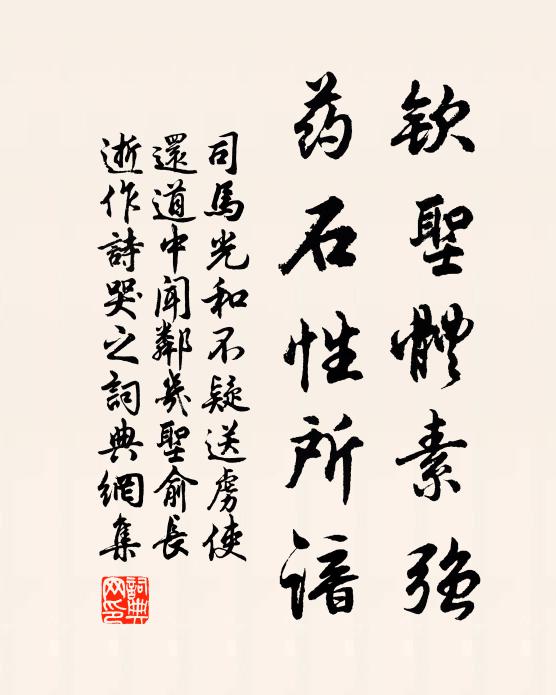 欽聖體素強
药石性所諳
司馬光和不疑送虜使
還道中闻鄰幾聖俞長
逝作詩哭之詞典網集
詞典網印